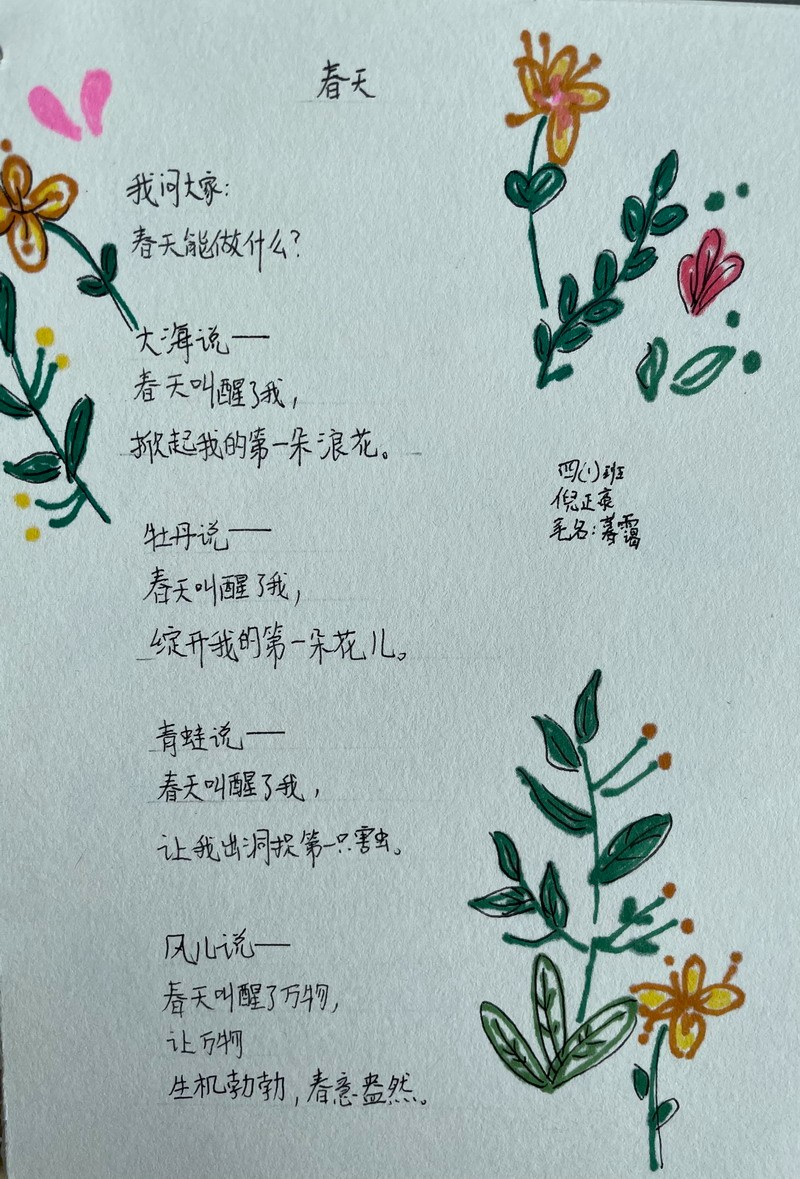 春天
我问大家：
春天能做什么？
大海说——
春天叫醒了我，
掀起我的第一朵浪花。
牡丹说——
春天叫醒了我，
绽开我的第一朵花儿。
青蛙说——
春天叫醒了我，
让我出洞捉第一只害虫。
风儿说——
春天叫醒了万物，
让万物
生机勃勃，春意盎然。
四(1)班
倪正
毛名：暮霭